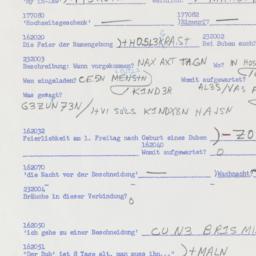 177080 177082
'Hochzeitsgeschenk' — 'Binser?' —
162020 232002
Die Feier der Namengebung )+HOSL3KRAST Bei Buben auch?
232003
Beschreibung: Wann vorgekommen? NAX AXT TAGN Wo IN HOS
Wen eingeladen? CE5N MENSTN Womit aufgewartet?
Was gesagt? KIND3R
G3ZUN73N/
162032
Feierlichkeit am 1. Freitag nach Geburt eines Buben )-ZO
162040
Womit aufgewartet? O
162070
'die Nacht vor der Beschneidung' — 'Wachnacht
232004
Bräuche in dieser Verbindung? O
162050
'ich gehe zu einer Beschneidung' CU N3 BRIS MI
162051
"Der Bub' ist 8 Tage alt, man muss ihn..." )+MALN